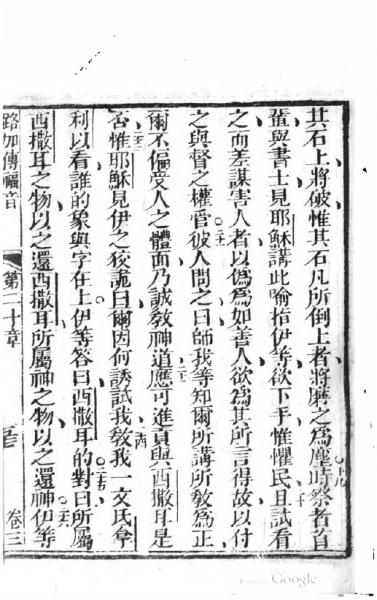 其石上將破惟其石凡所倒上者將磨之為塵時祭者首
輩與書士見耶穌講此喻指伊等欲下手惟懼民且試看
之而差謀害人者以偽為如善人欲為其所言得故以付
之與督之權官彼人問之曰師我等知爾所講所教為正
爾不偏受人之體面乃誠教神道應可進貢與西撒耳是
否惟耶穌見伊之狡詭曰爾因何誘試我教我一文氏拿
利以看誰的象與字在上伊等答曰西撒耳的對曰所屬
西撒耳之物以之還西撒耳所屬神之物以之還神伊等
路加傳福音 第二十章 卷三
Google